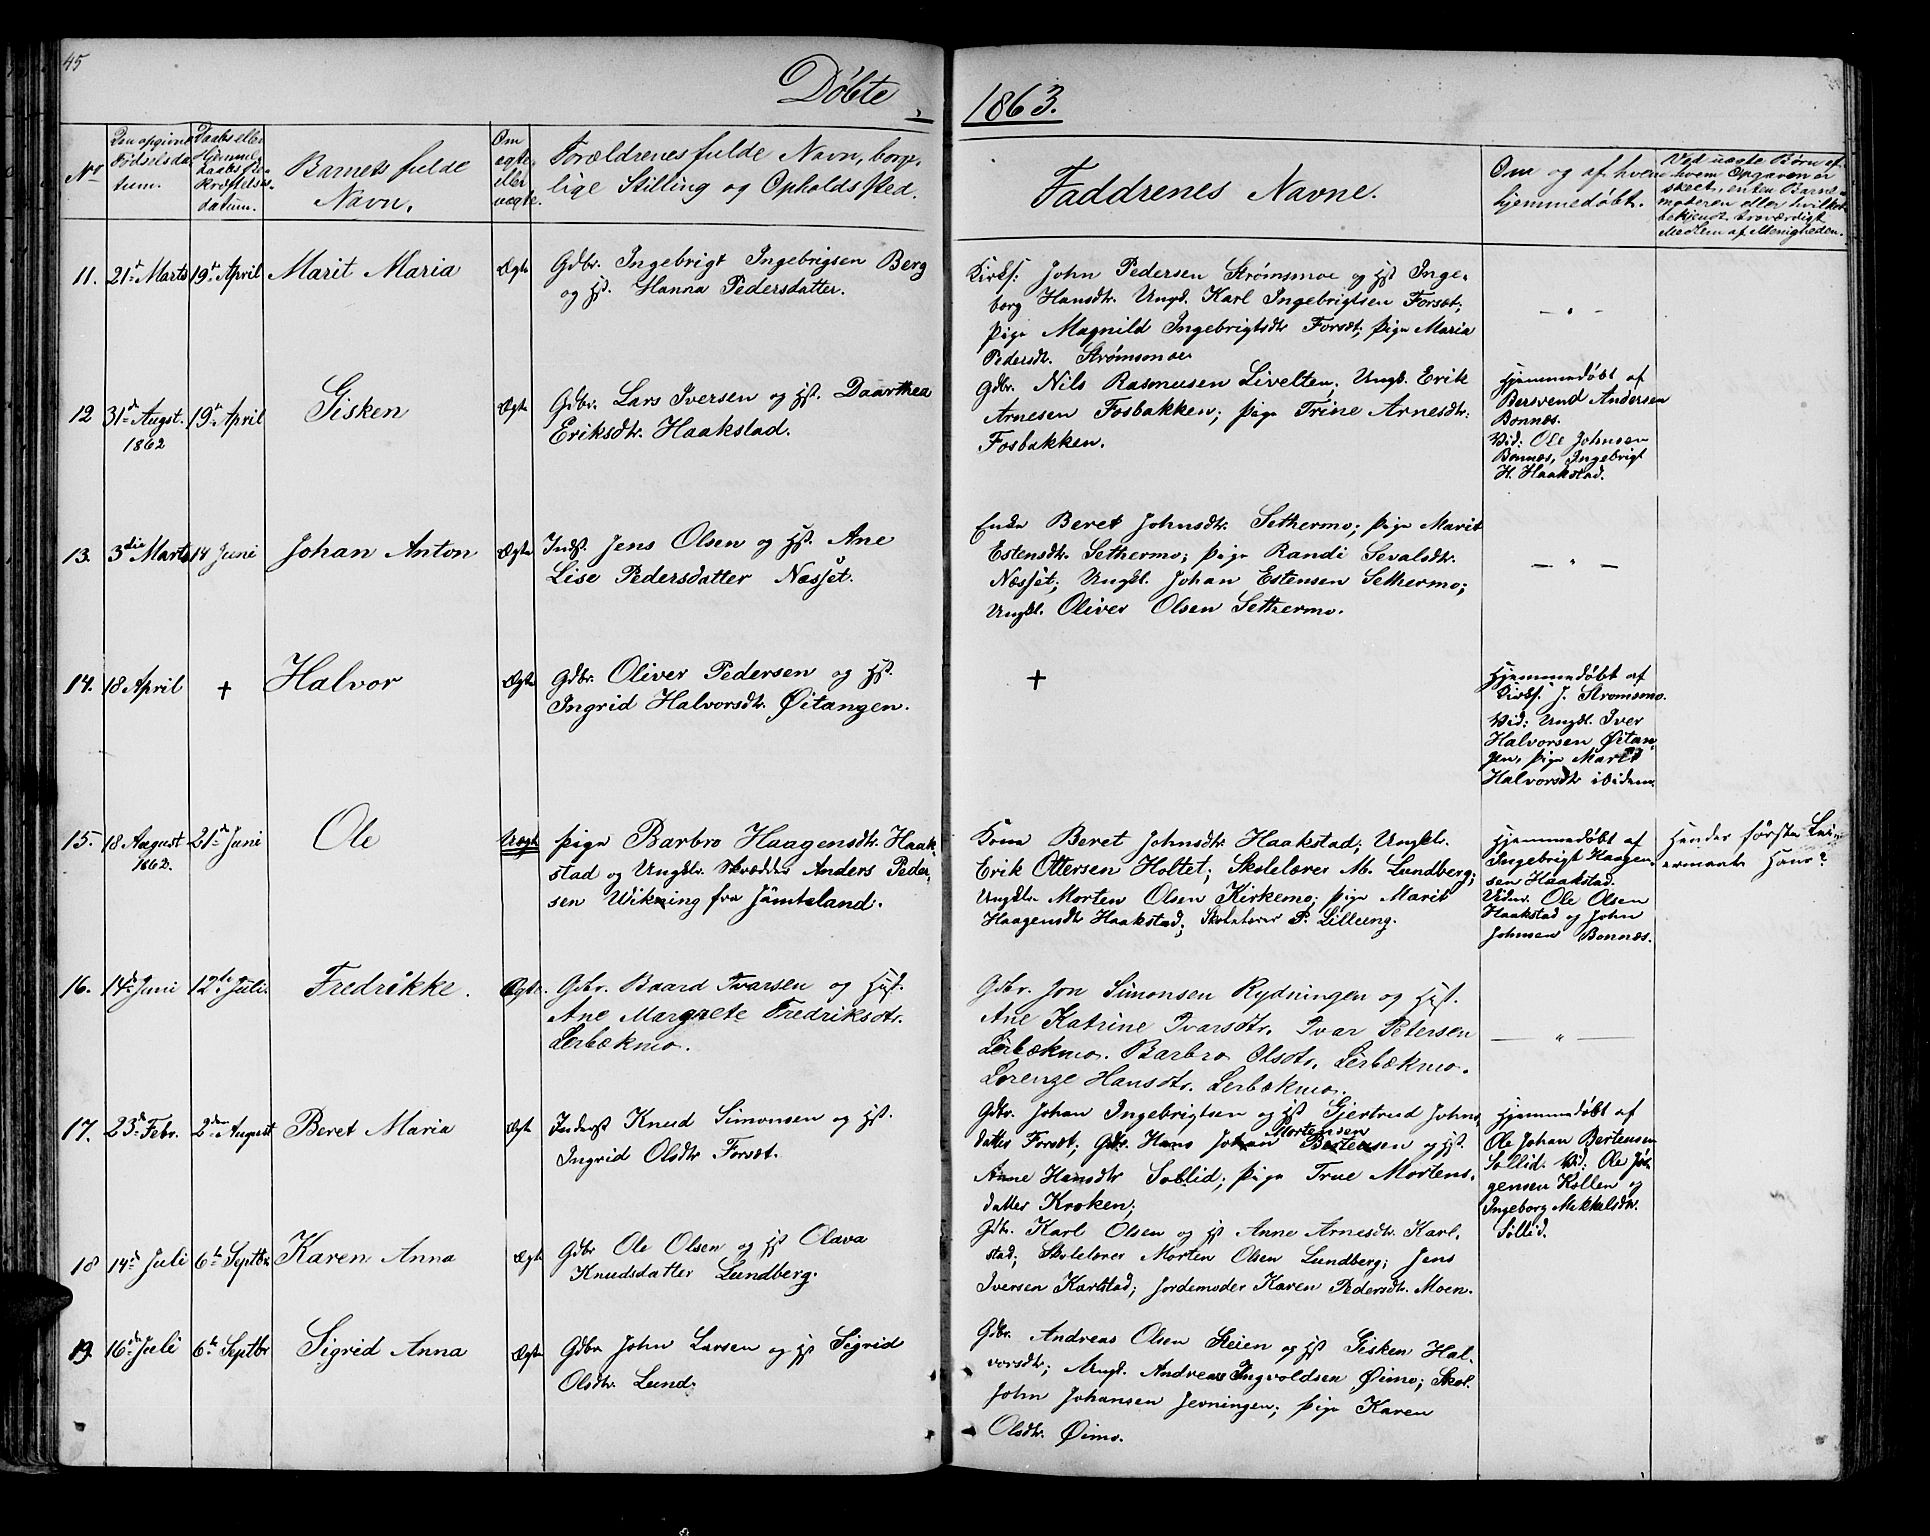 45
Døbte 1863.
No
Den opgivne Fødselsdatum.
Daabs eller Hjemmedaabs Bekræftelsesdatum.
Barnets fulde Navn.
Om ægte eller uægte.
Forældrenes fulde Navn, borgelige Stilling og Opholdssted.
Faddrenes Navne.
Om og af hvem hjemmedøbt.
Ved uægte Børn af hvem Opgaven er skeet, enten Barnemoderen eller hvilket bekjendt troværdigt Medlem af Menigheden.
11. 21de Marts 19de April Marit Maria Ægte
Gdbr. Ingebrigt Ingebrigsen Berg
og Hst. Hanna Pedersdatter.
Kirks. John Pedersen Strømsmoe og Hst Inge-
borg Hansdtr. Ungk. Karl Ingebrigtsen Forsæt;
Pige Magnild Ingebrigtsdtr Forsæt; Pige Maria
Pedersdt. Strømsmoe
— " —
12 31de Augst. 1862 19de April Gisken Ægte
Gdbr. Lars Iversen og Hst. Daarthea
Eriksdtr. Haakstad.
Gdbr. Nils Rasmusen Livelten; Ungk. Erik
Arnesen Fosbakken; Pige Trine Arnesdtr.
Fosbakken.
Hjemmedøbt af
Bersvend Andersen
Bonnæs.
Vid: Ole Johnsen
Bonnæs, Ingebrigt
H. Haakstad.
13. 3die Marts 14 Juni Johan Anton Ægte
Inds. Jens Olsen og Hst. Ane
Lise Pedersdatter Næsset.
Enke Beret Johnsdtr. Sethermo; Pige Marit
Estensdtr. Sethermo; Pige Randi Sevalsdtr.
Næsset; Ungkl. Johan Estensen Sethermo;
Ungkl. Oliver Olsen Sethermo.
— " —
14. 18 April + Halvor Ægte
Gdbr. Oliver Pedersen og Hst.
Ingrid Halvorsdtr. Øitangen.
+
Hjemmedøbt af
Kirks. J. Stromsmo.
Vid: Ungkl. Iver
Halvorsen Øitan-
gen, Pige Marit
Halvorsdtr ibidem
15. 18 August 1862. 21de Juni Ole Uægte
Pige Barbro Haagensdtr. Haak-
stad og Ungklr. Skrædder Anders Peder-
sen Wikning fra Jämteland.
Kona Beret Johnsdtr Haakstad; Ungklr.
Erik Ottersen Holtet; Skolelærer M. Lundberg;
Ungklr Morten Olsen Kirkemo; Pige Marit
Haagensdtr Haakstad; Skolelærer P. Lilleeng.
Hjemmedøbt af
Ingebrigt Haagen-
sen Haakstad.
Vidner. Ole Olsen
Haakstad og John
Johnsen Bonnæs.
Hendes første Lei-
ermaal. Hans?
16. 14de Juni 12te Juli. Fredrikke. Ægte.
Gdbr. Baard Ivarsen og Hst.
Ane Margrete Fredriksdtr.
Lerbækmo.
Gdbr. Jon Simonsen Rydningen og Hst.
Ane Katrine Ivarsdtr. Ivar Petersen
Lerbækmo. Barbro Olsdtr. Lerbækmo.
Lorenze Hansdtr. Lerbækmo.
— " —
17. 23de Febr. 2den August Beret Maria Ægte
Inderst Knud Simonsen og Hst.
Ingrid Olsdtr Forsæt.
Gdbr. Johan Ingebrigtsen og Hst Gjertrud Johns-
datter Forsæt; Gdbr. Hans Johan Mortensen Bertensen og Hst.
Anne Hansdtr Sollid; Pige True Mortens-
datter Kroken;
Hjemmedøbt af
Ole Johan Bertensen
Sollid. Vid: Ole Jør-
gensen Kollen og
Ingeborg Mikkelsdtr.
Sollid.
18 14de Juli 6te Septbr Karen Anna Ægte
Gdbr Ole Olsen og Hst Olava
Knudsdatter Lundberg.
Gdbr. Karl Olsen og Hst Anne Arnesdtr. Karl-
stad; Skolelærer Morten Olsen Lundberg; Jens
Iversen Karlstad; Jordemoder Karen Pedersdtr. Moen.
19. 16de Juli 6te Septbr Sigrid Anna Ægte
Gdbr John Larsen og Hst Sigrid
Olsdtr. Lund.
Gdbr. Andreas Olsen Steien og Hst Gisken Hal-
vorsdtr; Ungk. Andreas Ingvoldsen Øimo; Skol.
John Johansen Jevningen; Pige Karen
Olsdtr. Øimo.